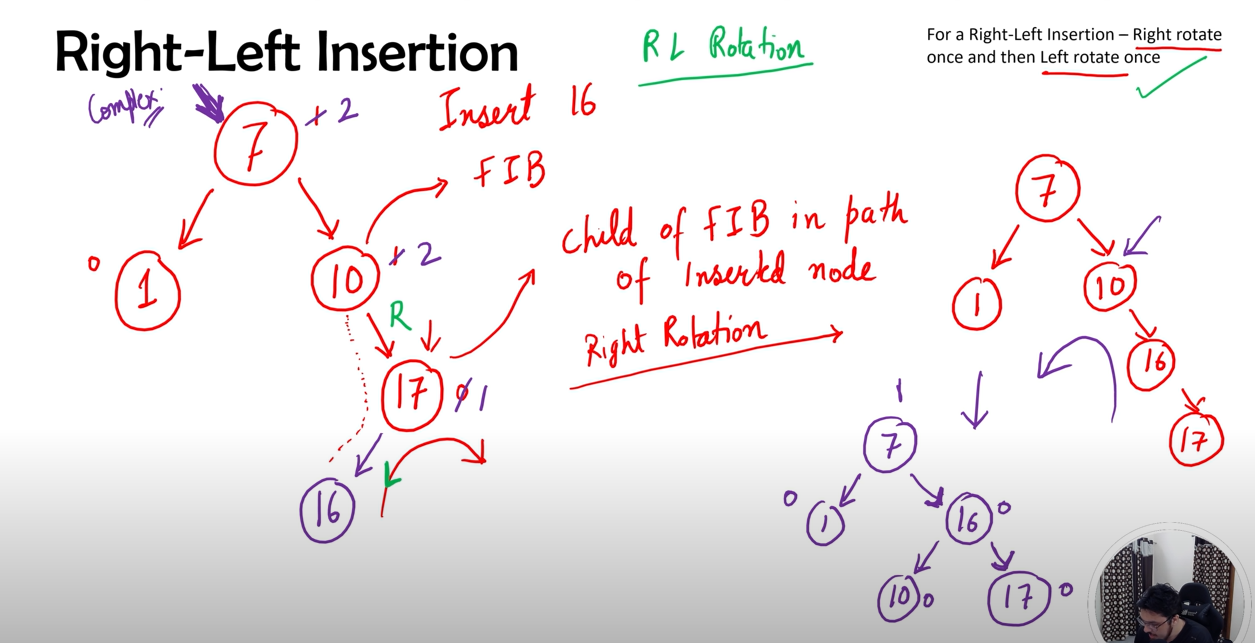 Right-Left Insertion
RL Rotation
For a Right-Left Insertion – Right rotate
once and then Left rotate once
Complex
7
2
Insert 16
FIB
0
1
10
2
R
17
0 1
16
Child of FIB in path
of Inserted node
Right Rotation
7
1
10
16
17
1
7
0
1
16
0
10
0
17
0